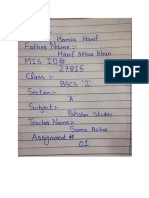 Hamia Hanif
Father Name :-
Hanif Akbar Khan
MIS ID#
27815
Class :-
BSCS '2'
Section:-
'A'
Subject:-
Pakistan Studies
Teacher Name:-
Saima
Assignment #
01